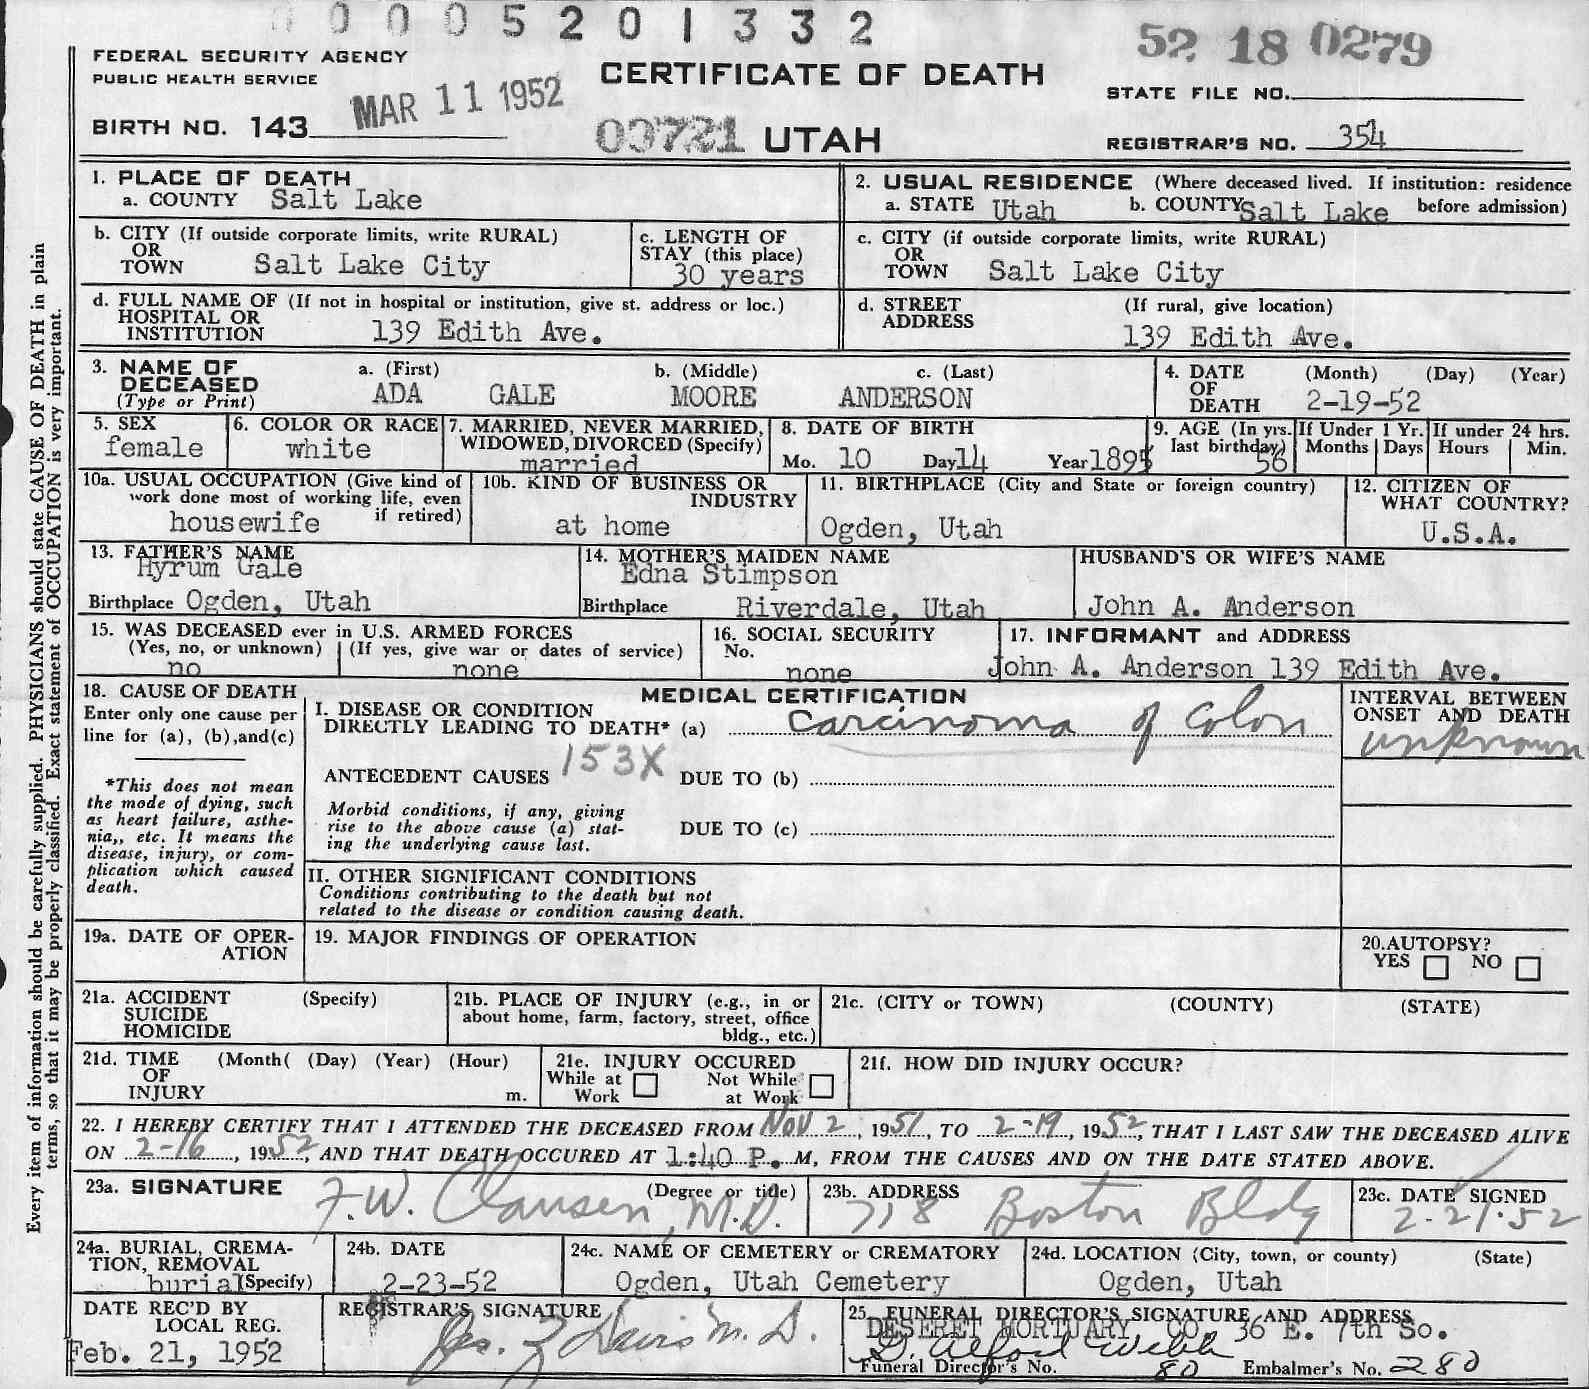 0 0 0 5 2 0 1 3 3 2
52 18 0279
FEDERAL SECURITY AGENCY
PUBLIC HEALTH SERVICE
CERTIFICATE OF DEATH
STATE FILE NO.
MAR 11 1952
BIRTH NO. 143
03721 UTAH
REGISTRAR'S NO. 354
1. PLACE OF DEATH
a. COUNTY Salt Lake
2. USUAL RESIDENCE (Where deceased lived. If institution: residence before admission)
a. STATE Utah b. COUNTY Salt Lake
b. CITY (If outside corporate limits, write RURAL)
OR
TOWN Salt Lake City
c. LENGTH OF
STAY (this place)
30 years
c. CITY (if outside corporate limits, write RURAL)
OR
TOWN Salt Lake City
d. FULL NAME OF (If not in hospital or institution, give st. address or loc.)
HOSPITAL OR
INSTITUTION 139 Edith Ave.
d. STREET (If rural, give location)
ADDRESS 139 Edith Ave.
3. NAME OF DECEASED (Type or Print)
a. (First) b. (Middle) c. (Last)
ADA GALE MOORE ANDERSON
4. DATE OF DEATH (Month) (Day) (Year)
2-19-52
5. SEX
female
6. COLOR OR RACE
white
7. MARRIED, NEVER MARRIED,
WIDOWED, DIVORCED (Specify)
married
8. DATE OF BIRTH
Mo. 10 Day 14 Year 1895
9. AGE (In yrs.
last birthday)
56
If Under 1 Yr.
Months Days
If under 24 hrs.
Hours Min.
10a. USUAL OCCUPATION (Give kind of
work done most of working life, even
if retired)
housewife
10b. KIND OF BUSINESS OR
INDUSTRY
at home
11. BIRTHPLACE (City and State or foreign country)
Ogden, Utah
12. CITIZEN OF
WHAT COUNTRY?
U.S.A.
13. FATHER'S NAME
Hyrum Gale
Birthplace Ogden, Utah
14. MOTHER'S MAIDEN NAME
Edna Stimpson
Birthplace Riverdale, Utah
HUSBAND'S OR WIFE'S NAME
John A. Anderson
15. WAS DECEASED ever in U.S. ARMED FORCES
(Yes, no, or unknown) (If yes, give war or dates of service)
no none
16. SOCIAL SECURITY
No.
none
17. INFORMANT and ADDRESS
John A. Anderson 139 Edith Ave.
18. CAUSE OF DEATH
Enter only one cause per
line for (a), (b),and(c)
*This does not mean
the mode of dying, such
as heart failure, asthe-
nia,, etc. It means the
disease, injury, or com-
plication which caused
death.
MEDICAL CERTIFICATION
I. DISEASE OR CONDITION
DIRECTLY LEADING TO DEATH* (a) Carcinoma of Colon
153X
ANTECEDENT CAUSES DUE TO (b)
Morbid conditions, if any, giving
rise to the above cause (a) stat-
ing the underlying cause last.
DUE TO (c)
INTERVAL BETWEEN
ONSET AND DEATH
unknown
II. OTHER SIGNIFICANT CONDITIONS
Conditions contributing to the death but not
related to the disease or condition causing death.
19a. DATE OF OPER-
ATION
19. MAJOR FINDINGS OF OPERATION
20.AUTOPSY?
YES NO
21a. ACCIDENT (Specify)
SUICIDE
HOMICIDE
21b. PLACE OF INJURY (e.g., in or
about home, farm, factory, street, office
bldg., etc.)
21c. (CITY or TOWN) (COUNTY) (STATE)
21d. TIME (Month( (Day) (Year) (Hour)
OF
INJURY m.
21e. INJURY OCCURED
While at Work Not While at Work
21f. HOW DID INJURY OCCUR?
22. I HEREBY CERTIFY THAT I ATTENDED THE DECEASED FROM Nov 2, 1951, TO 2-19, 1952, THAT I LAST SAW THE DECEASED ALIVE
ON 2-16, 1952, AND THAT DEATH OCCURED AT 1:40 P. M, FROM THE CAUSES AND ON THE DATE STATED ABOVE.
23a. SIGNATURE (Degree or title)
F.W. Clausen, M.D.
23b. ADDRESS
718 Boston Bldg
23c. DATE SIGNED
2-21-52
24a. BURIAL, CREMA-
TION, REMOVAL
burial (Specify)
24b. DATE
2-23-52
24c. NAME OF CEMETERY or CREMATORY
Ogden, Utah Cemetery
24d. LOCATION (City, town, or county) (State)
Ogden, Utah
DATE REC'D BY
LOCAL REG.
Feb. 21, 1952
REGISTRAR'S SIGNATURE
Davis M. D.
25. FUNERAL DIRECTOR'S SIGNATURE AND ADDRESS
DESERET MORTUARY, CO. 36 E. 7th So.
D. Alford Webb
Funeral Director's No. 80 Embalmer's No. 280
Every item of information should be carefully supplied. PHYSICIANS should state CAUSE OF DEATH in plain
terms, so that it may be properly classified. Exact statement of OCCUPATION is very important.